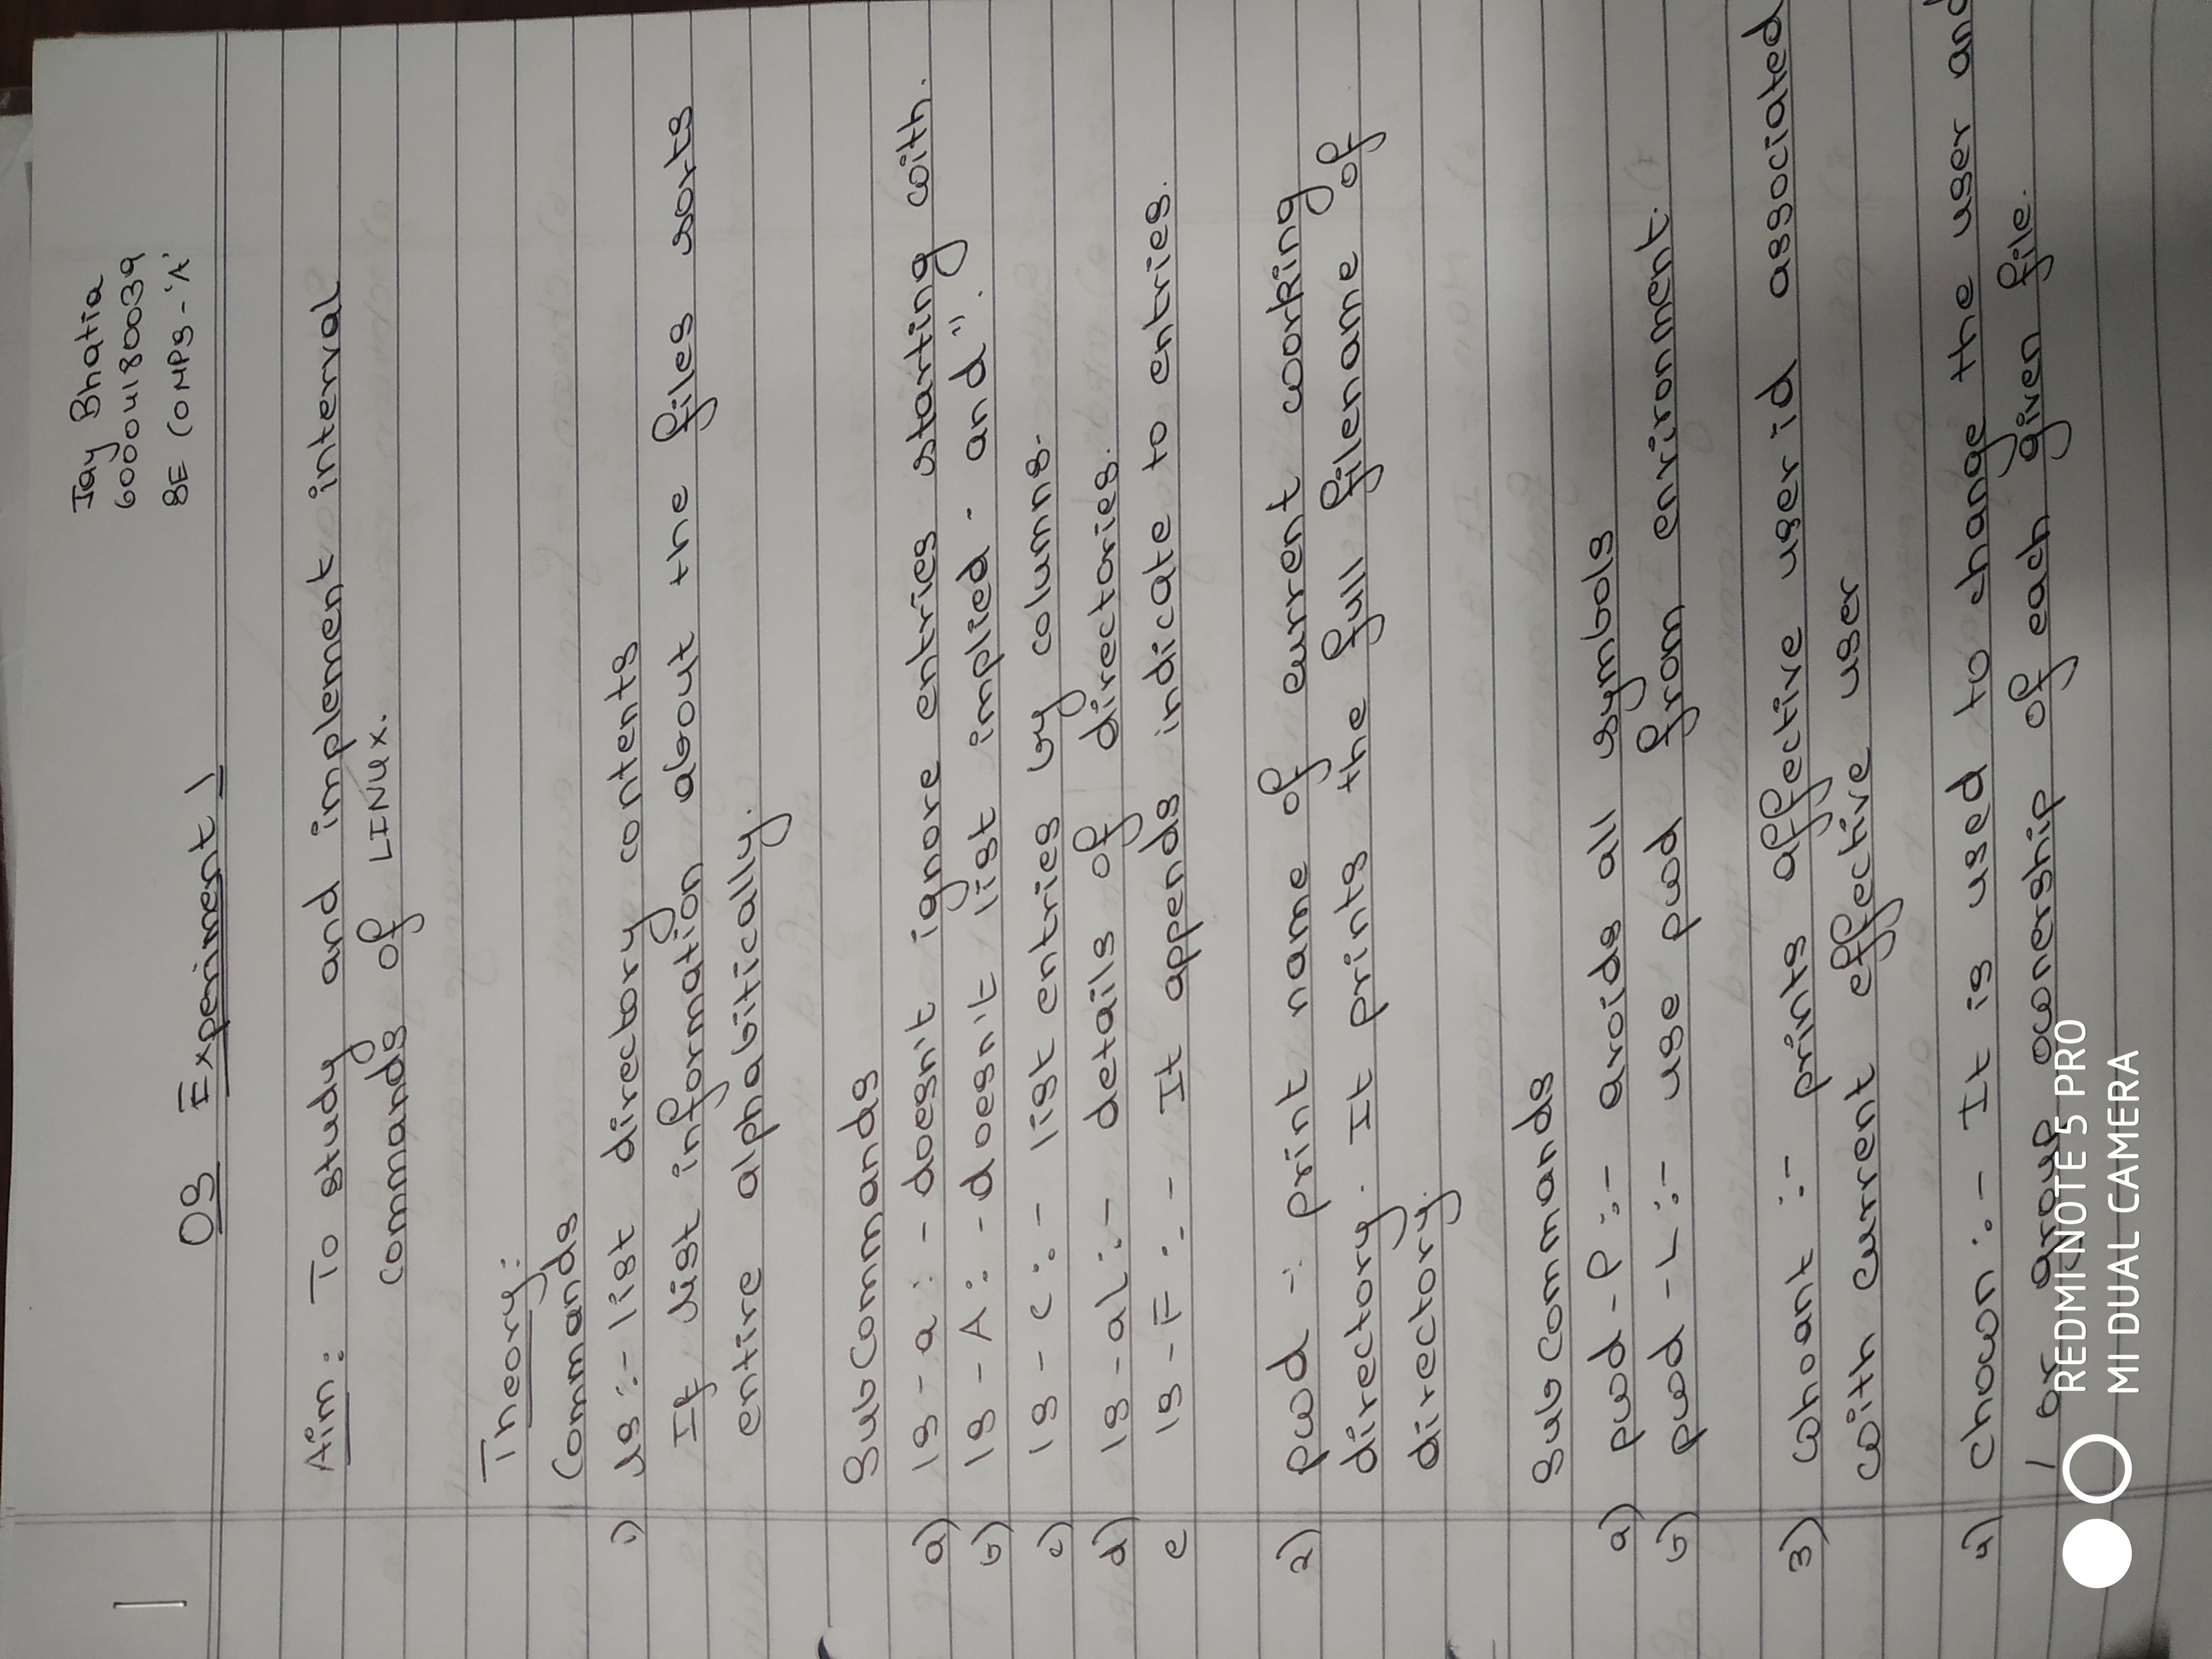 Jay Bhatia
60004180039
SE COMPS - 'A'
OS Experiment 1
Aim: To study and implement interval
commands of LINUX.
Theory:
Commands
1) ls :- list directory contents
If list information about the files sorts
entire alphabitically.
Subcommands
a) ls - a : - doesn't ignore entries starting with.
b) ls - A : - doesn't list implied - and ".
c) ls - c : - list entries by columns.
d) ls - al : - details of directories.
e ls - F : - It appends indicate to entries.
2) pwd -: print name of current working
directory. It prints the full filename of
directory.
Subcommands
a) pwd - P :- avoids all symbols
b) pwd - L :- use pwd from environment.
3) whoant :- prints affective user id associated
with current effective user
4) chown : - It is used to change the user and
/ or group ownership of each given file.
REDMI NOTE 5 PRO
MI DUAL CAMERA